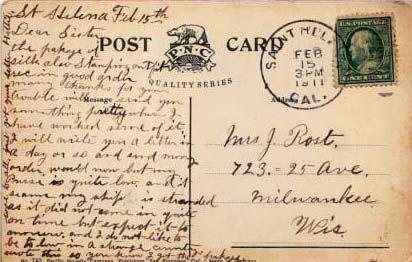 St Helena Feb 15th
Dear Sister
the pakege of
silk also Stamping outfit
me in good order
many thanks for your
trouble will send you
something pretty when I
have worked some of it
I will write you a letter in
a day or so and send mony
order would now but my
purse is quite low and
seems my ship is stranded
as it did not come in quite
on time but expect it to
morrow and I do not like to
be to low in a strange country
wrote this so you know I got the pakege
POST CARD
P.N.C.
QUALITY SERIES
Message
Address
SAINT HELENA
FEB
15
3 PM
1911
CAL.
U.S. POSTAGE
ONE CENT
Mrs J. Post.
723.=25 Ave.
Milwaukee
Wis.